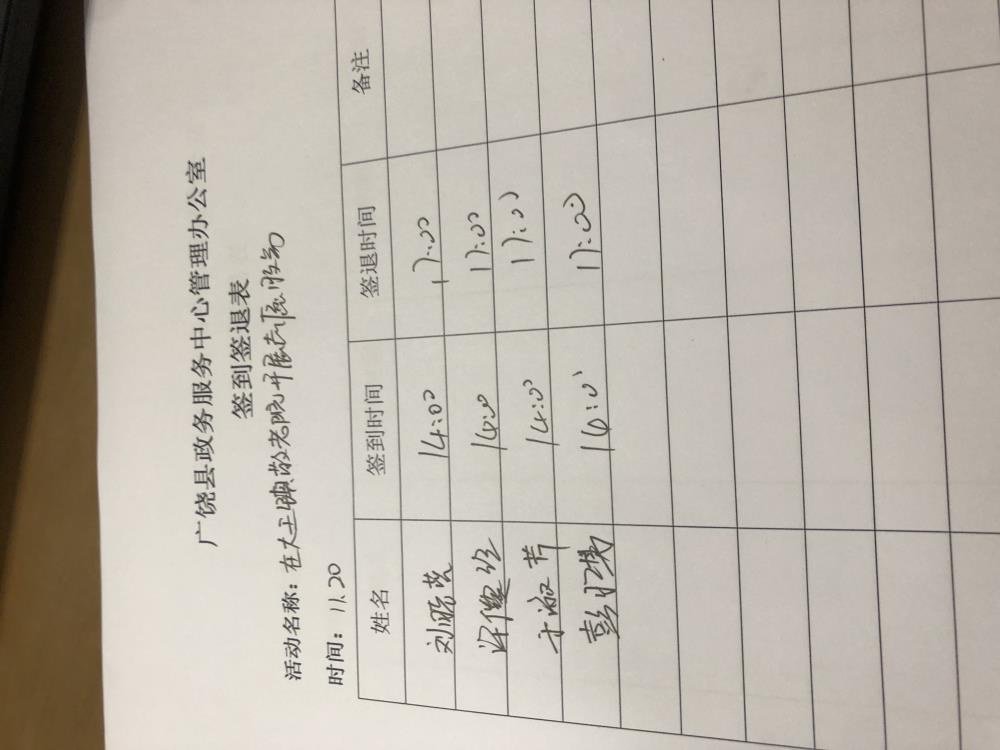 广饶县政务服务中心管理办公室
签到签退表
活动名称：在大王镇敬老院开展志愿服务
时间：11.20
姓名 签到时间 签退时间 备注
刘 14:00 17:00
14:00 17:00
于淑芳 14:00 17:00
彭 14:00 17:00